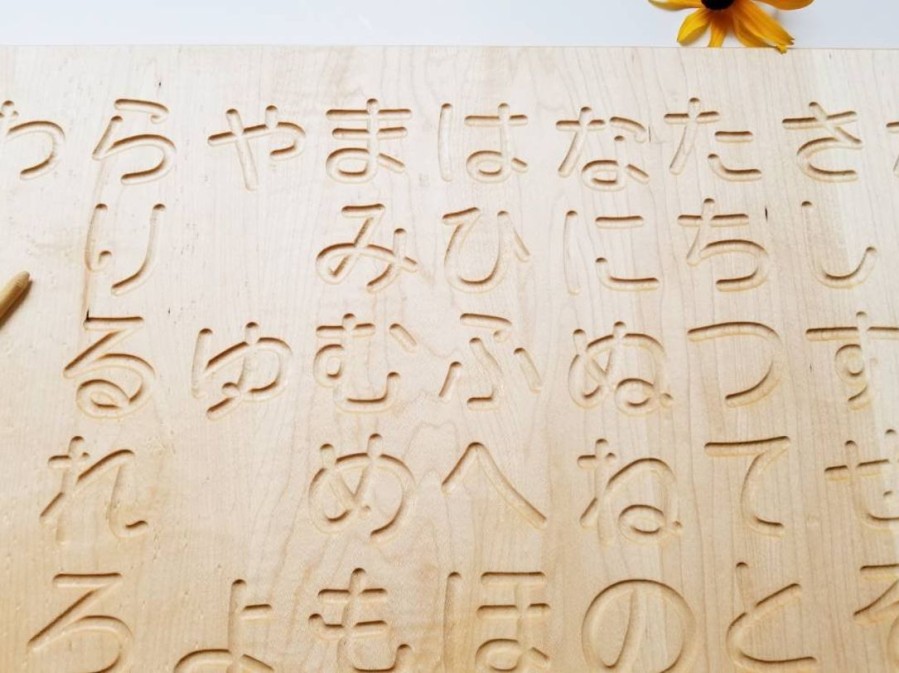 さしすせそ
たちつてと
なにぬねの
はひふへほ
まみむめも
やゆよ
らりるれろ
わ